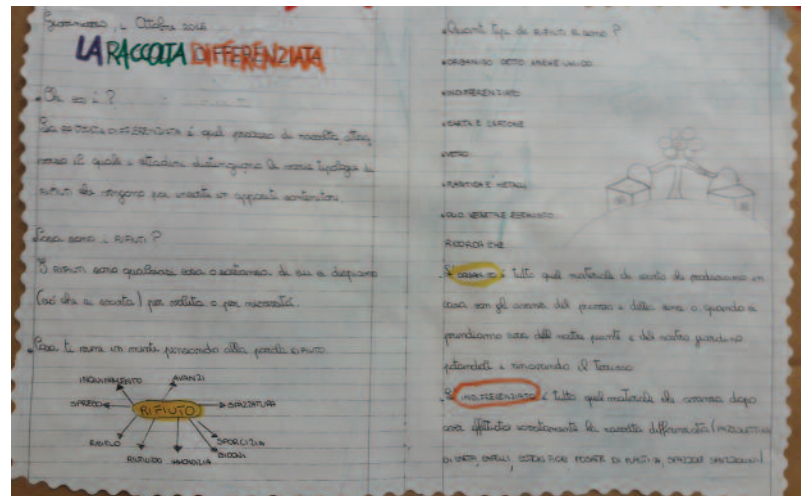 Ottobre
LA RACCOLTA DIFFERENZIATA
Che cos'è?
La RACCOLTA DIFFERENZIATA è quel processo di raccolta attra_
verso il quale i cittadini distinguono le varie tipologie di
RIFIUTI che vengono poi inserite in appositi contenitori.
Cosa sono i RIFIUTI?
I RIFIUTI sono qualsiasi cosa o sostanza di cui ci
(ciò che si scarta) per scelta o per necessità.
Cosa ti viene in mente pensando alla parola RIFIUTO
INQUINAMENTO
AVANZI
SPRECO
RIFIUTO
SPAZZATURA
SPORCIZIA
BIDONI
IMMONDIZIA
Quanti tipi di RIFIUTI ci sono?
ORGANICO DETTO ANCHE UMIDO
INDIFFERENZIATO
CARTA E CARTONE
VETRO
PLASTICA E METALLI
OLIO VEGETALE ESAUSTO
RICORDA CHE
L'ORGANICO è tutto quel materiale di scarto che produciamo in
casa con gli avanzi del pranzo e della cena o quando ci
prendiamo cura delle nostre piante e del nostro giardino
potandoli e rinnovando il terriccio
L'INDIFFERENZIATO è tutto quel materiale che avanza dopo
aver effettuato correttamente la raccolta differenziata (
POSATE DI PLASTICA, SPAZZOLE